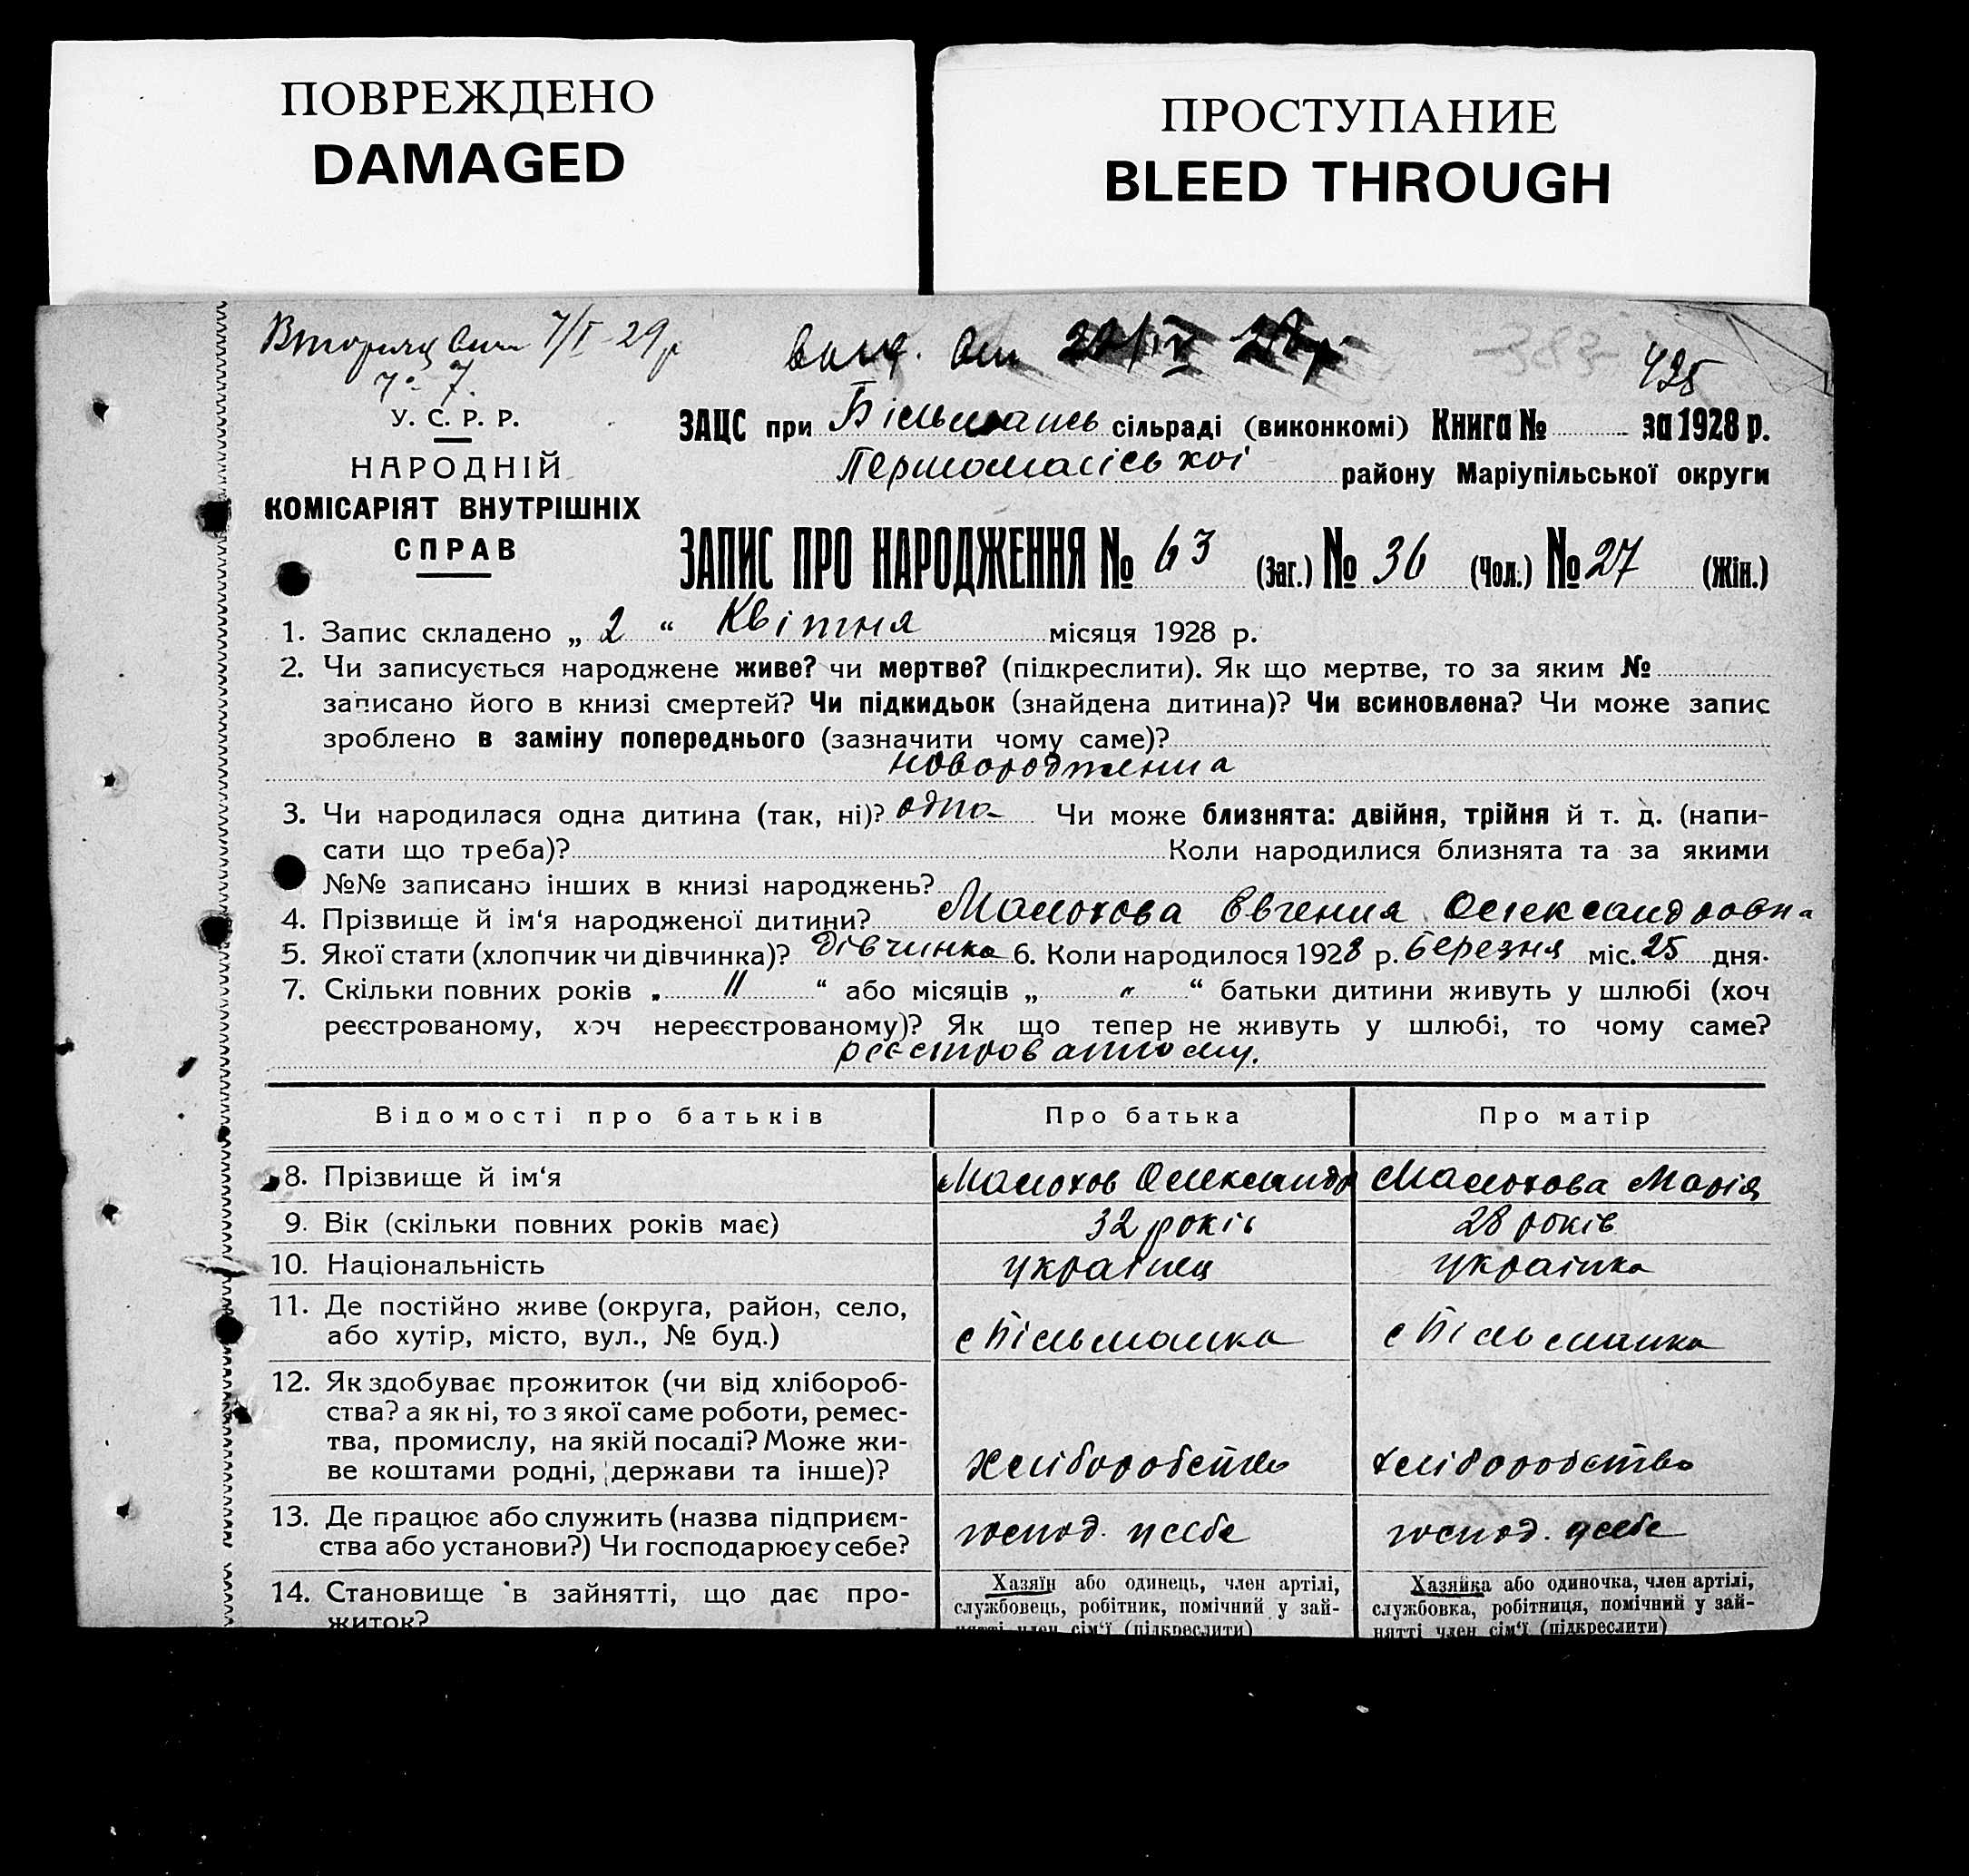 ПОВРЕЖДЕНО
DAMAGED
ПРОСТУПАНИЕ
BLEED THROUGH
7/I-29 р
№ 7.
425
У. С. Р. Р.
НАРОДНІЙ
КОМІСАРІЯТ ВНУТРІШНІХ
СПРАВ
ЗАЦС при Більмансь сільраді (виконкомі) Книга № за 1928 р.
Першомайської району Маріупільської округи
ЗАПИС ПРО НАРОДЖЕННЯ № 63 (Заг.) № 36 (Чол.) № 27 (Жін.)
1. Запис складено „ 2 “ Квітня місяця 1928 р.
2. Чи записується народжене живе? чи мертве? (підкреслити). Як що мертве, то за яким №
записано його в книзі смертей? Чи підкидьок (знайдена дитина)? Чи всиновлена? Чи може запис
зроблено в заміну попереднього (зазначити чому саме)?
3. Чи народилася одна дитина (так, ні)? одна Чи може близнята: двійня, трійня й т. д. (напи-
сати що треба)? Коли народилися близнята та за якими
№№ записано інших в книзі народжень?
4. Прізвище й ім‘я народженої дитини? Малохова Евгения Олександровна
5. Якої стати (хлопчик чи дівчинка)? Дівчинка 6. Коли народилося 1928 р. Березня міс. 25 дня.
7. Скільки повних років „ 11 “ або місяців „ “ батьки дитини живуть у шлюбі (хоч
реєстрованому, хоч нереєстрованому)? Як що тепер не живуть у шлюбі, то чому саме?
реєстрованному.
Відомості про батьків Про батька Про матір
8. Прізвище й ім‘я Малохов Олександр Малохова Марія
9. Вік (скільки повних років має) 32 років 28 років
10. Національність українец українка
11. Де постійно живе (округа, район, село,
або хутір, місто, вул., № буд.) с Більманка с Більманка
12. Як здобуває прожиток (чи від хлібороб-
ства? а як ні, то з якої саме роботи, ремес-
тва, промислу, на якій посаді? Може жи-
ве коштами родні, держави та інше)? Хліборобство хліборобство
13. Де працює або служить (назва підприєм-
ства або установи?) Чи господарює у себе? господ. у себе господ. у себе
14. Становище в зайнятті, що дає про-
житок?
Хазяїн або одинець, член артілі,
службовець, робітник, помічний у зай-
нятті член сім‘ї (підкреслити)
Хазяйка або одиночка, член артілі,
службовка, робітниця, помічний у зай-
нятті член сім‘ї (підкреслити)